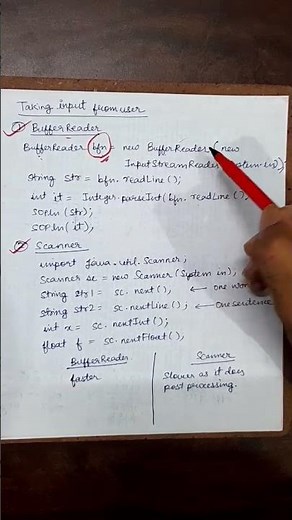 Taking input from user
① BufferReader
BufferReader bfn = new BufferReader (new
InputStreamReader(System.in));
String str = bfn.readLine();
int it = Integer.parseInt(bfn.readLine();
SOPln (str);
SOPln (it);
② Scanner
import java.util.Scanner;
Scanner sc = new Scanner (System in);
String str1 = sc.next(); ← one word
String str2 = sc.nextLine(); ← One sentence
int x = sc.nextInt();
float f = sc.nextFloat();
BufferReader
faster
Scanner
slower as it does
post processing.